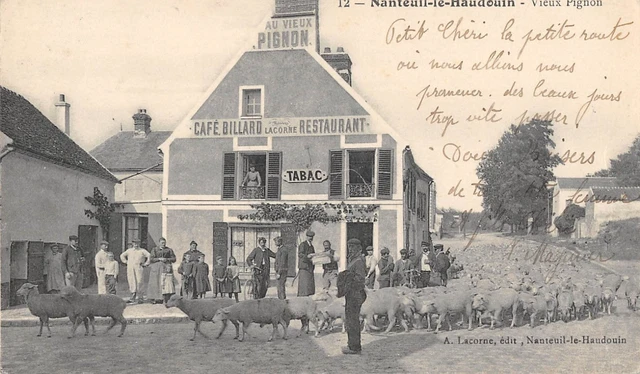 12 — Nanteuil-le-Haudouin - Vieux Pignon
AU VIEUX
PIGNON
CAFÉ. BILLARD LACORNE RESTAURANT
TABAC
Petit Chéri la petite route
ou nous allions nous
promener. des beaux jours
trop vite passer
Doux baisers
de ta
A. Lacorne, édit, Nanteuil-le-Haudouin